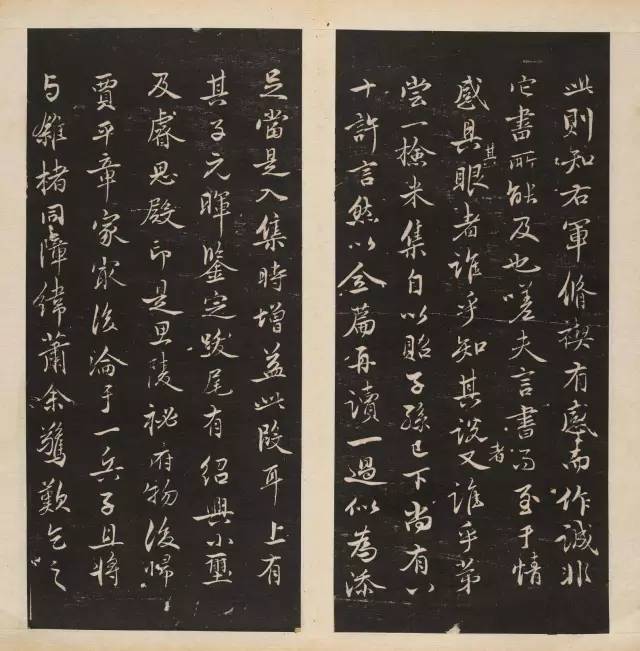 此則知右軍脩禊有感而作誠非
它書所能及也嗟夫言書而至于情
感具其眼者誰乎知其説者又誰乎第
嘗一撿米集自以貽子孫已下尚有八
十許言然以全篇再讀一過似為添
足當是入集時增益此段耳上有
其子元暉鑒定跋尾有紹興小璽
及睿思殿印是思陵祕府物後歸
賈平章家最後淪于一兵子且將
与雜楮同障緯蕭余驚歎乞之